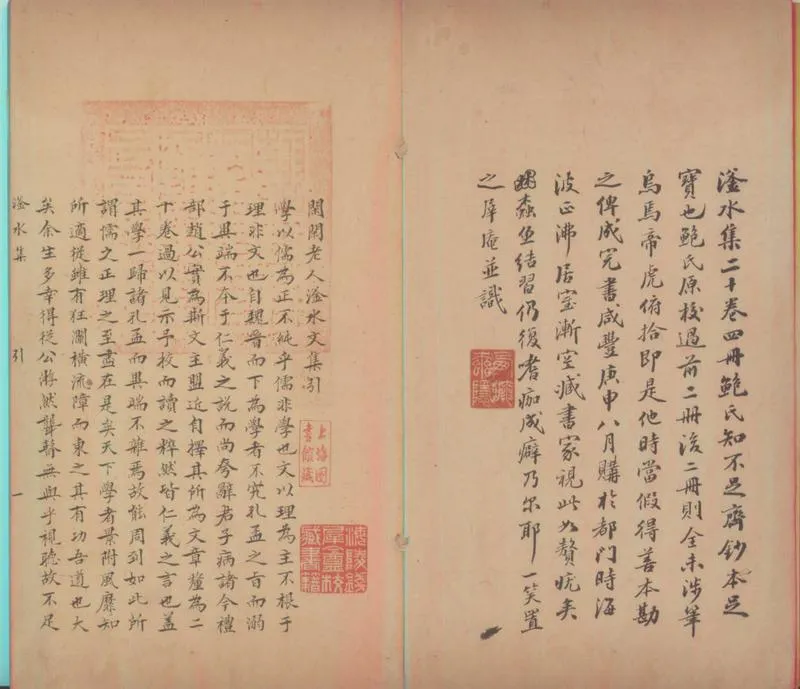 滏水集二十卷四冊鮑氏知不足齋鈔本足
寶也鮑氏原校過前二冊後二冊則全未涉筆
烏焉帝虎俯拾即是他時當假得善本勘
之俾成完書咸豐庚申八月購於都門時海
波正沸居室漸空藏書家視此如贅疣矣
蟲魚結習仍復耆痂成癖乃尔耶一笑置
之犀庵並識
閑閑老人滏水文集引
學以儒為正不純乎儒非學也文以理為主不根于
理非文也自魏晉而下為學者不究孔孟之旨而溺
于異端不本于仁義之說而尚夸辭君子病諸今禮
部趙公實為斯文主盟近自擇其所為文章釐為二
十卷過以見示予校而讀之粹然皆仁義之言也蓋
其學一歸諸孔孟而異端不雜焉故能周到如此所
謂儒之正理之至盡在是矣天下學者景附風靡知
所適從雖有狂瀾橫流障而東之其有功吾道也大
矣余生多幸得從公游然聾瞽無與乎視聽故不足
滏水集
引
一
上海圖
書館藏
海陵錢
犀盦校
藏書籍